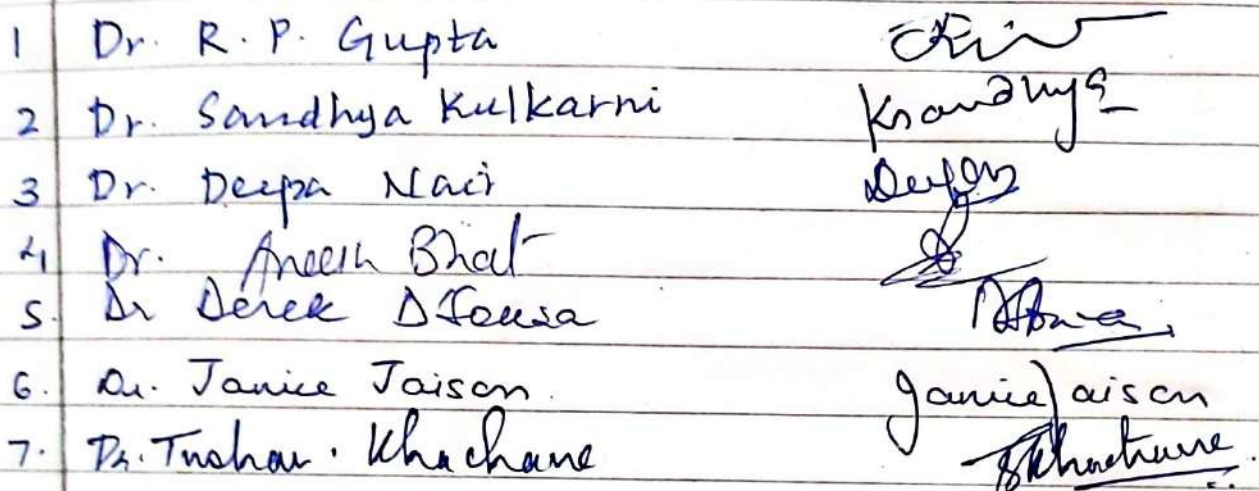 1 Dr. R. P. Gupta
2 Dr. Sandhya Kulkarni Ksandhya
3 Dr. Deepa Nair Deepa
4 Dr. Aneesh Bhat
5. Dr Derek DSouza
6. Dr. Janice Jaison. Janice Jaison
7. Dr. Tushar. Khachane TKhachane